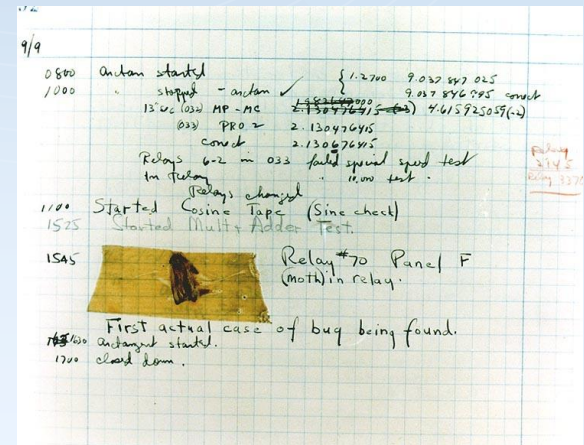 9/9
0800 antan started { 1.2700 9.037 847 025
1000 " stopped - antan ✓ 9.037 846 995 correct
13"uc (032) MP - MC 2.130476415 (-3) 4.615925059(-2)
(033) PRO 2 2.130476415
correct 2.130676415
Relays 6-2 in 033 failed special speed test
In Relay " 10.000 test.
Relay
2145
Relay 3370
Relays changed
1100 Started Cosine Tape (Sine check)
1525 Started Mult + Adder Test.
1545 Relay #70 Panel F
(moth) in relay.
First actual case of bug being found.
1630 antangent started.
1700 closed down.